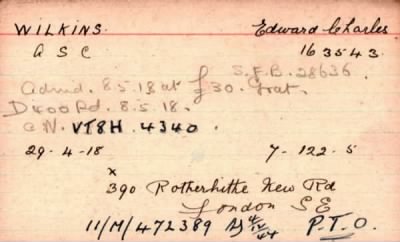 WILKINS. Edward Charles
A S C 163543.
S.F.B. 28636.
Admd. 8.5.18 at £30. Grat.
D400 Pd. 8.5.18.
C.N. VT8H. 4340.
29-4-18 7-122-5
x
390 Rotherhithe New Rd
London S E
11/M/472389 P.T.O.